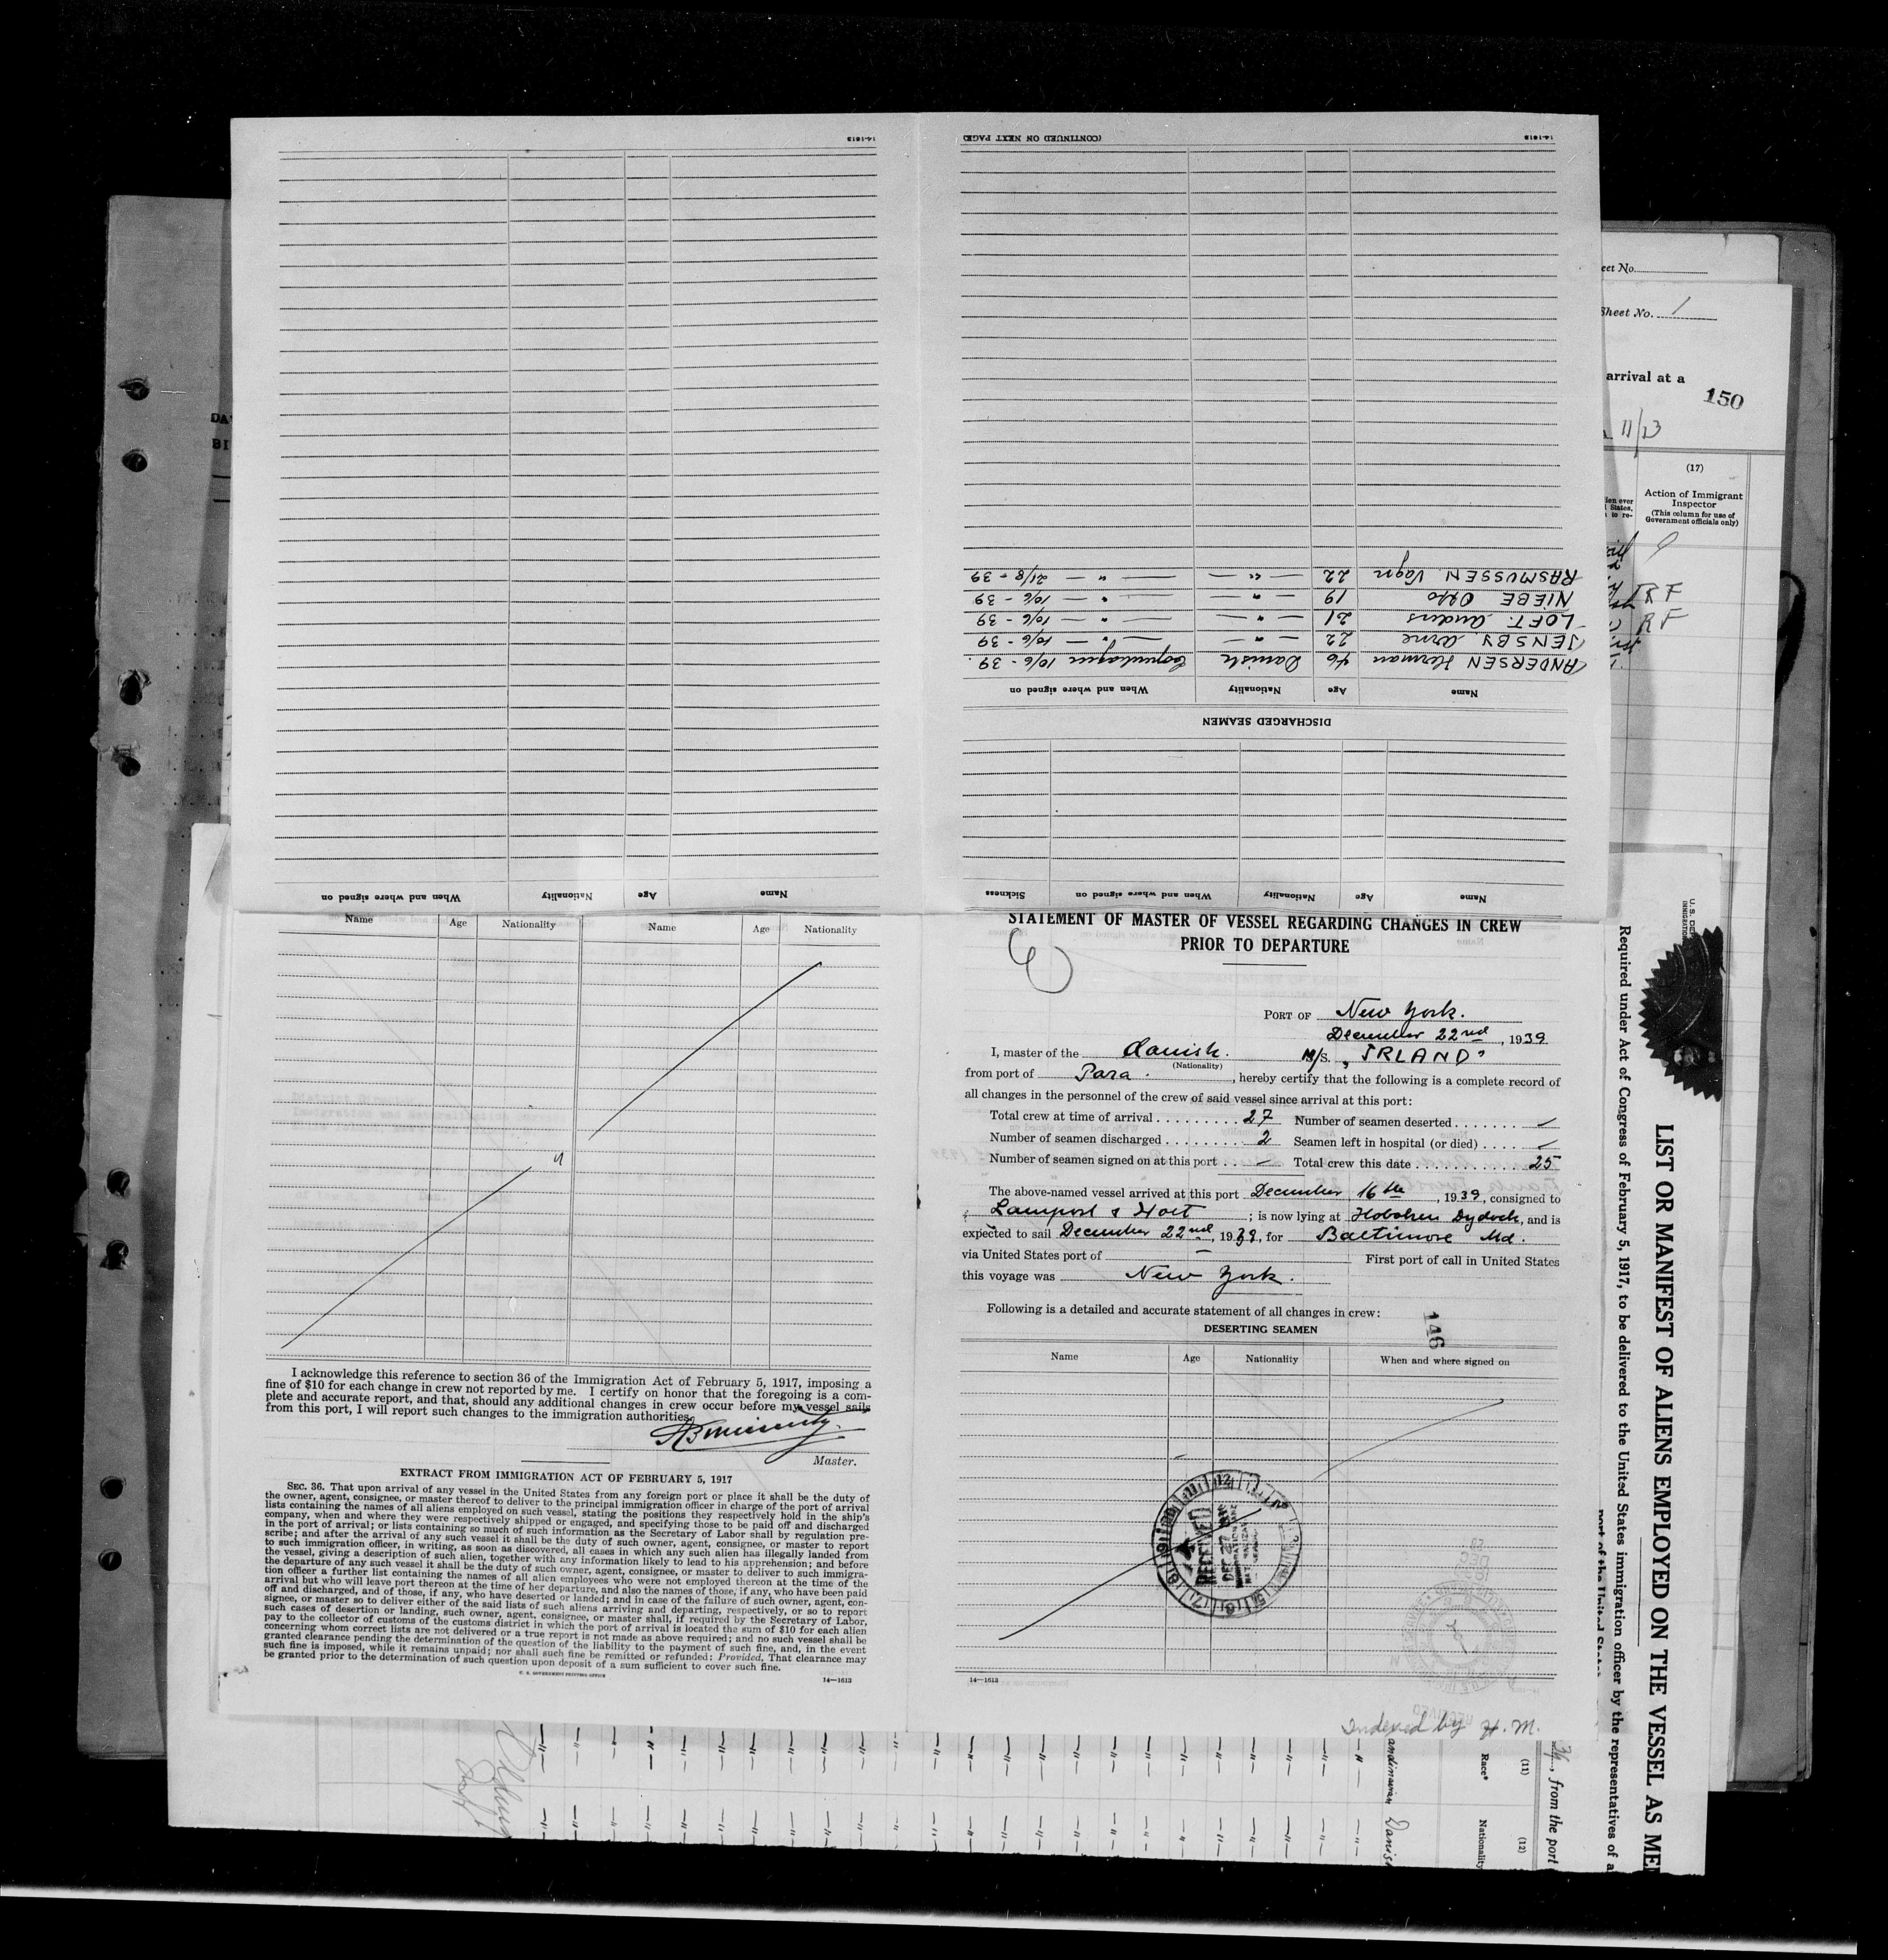 14-1613
(CONTINUED ON NEXT PAGE)
14-1613
RASMUSSEN Vagn 22 — " — — " — 21/8 - 39
NIEBE Otto 19 — " — — " — 10/6 - 39
LOFT. Anders 21 — " — — " — 10/6 - 39
JENSBY Arne 22 — " — — " — 10/6 - 39
ANDERSEN Herman 46 Danish Copenhagen 10/6 - 39.
Name Age Nationality When and where signed on
DISCHARGED SEAMEN
Name Age Nationality When and where signed on
Name Age Nationality When and where signed on Sickness
Name Age Nationality Name Age Nationality
I acknowledge this reference to section 36 of the Immigration Act of February 5, 1917, imposing a
fine of $10 for each change in crew not reported by me. I certify on honor that the foregoing is a com-
plete and accurate report, and that, should any additional changes in crew occur before my vessel sails
from this port, I will report such changes to the immigration authorities.
Master.
EXTRACT FROM IMMIGRATION ACT OF FEBRUARY 5, 1917
SEC. 36. That upon arrival of any vessel in the United States from any foreign port or place it shall be the duty of
the owner, agent, consignee, or master thereof to deliver to the principal immigration officer in charge of the port of arrival
lists containing the names of all aliens employed on such vessel, stating the positions they respectively hold in the ship's
company, when and where they were respectively shipped or engaged, and specifying those to be paid off and discharged
in the port of arrival; or lists containing so much of such information as the Secretary of Labor shall by regulation pre-
scribe; and after the arrival of any such vessel it shall be the duty of such owner, agent, consignee, or master to report
to such immigration officer, in writing, as soon as discovered, all cases in which any such alien has illegally landed from
the vessel, giving a description of such alien, together with any information likely to lead to his apprehension; and before
the departure of any such vessel it shall be the duty of such owner, agent, consignee, or master to deliver to such immigra-
tion officer a further list containing the names of all alien employees who were not employed thereon at the time of the
arrival but who will leave port thereon at the time of her departure, and also the names of those, if any, who have been paid
off and discharged, and of those, if any, who have deserted or landed; and in case of the failure of such owner, agent, con-
signee, or master so to deliver either of the said lists of such aliens arriving and departing, respectively, or so to report
such cases of desertion or landing, such owner, agent, consignee, or master shall, if required by the Secretary of Labor,
pay to the collector of customs of the customs district in which the port of arrival is located the sum of $10 for each alien
concerning whom correct lists are not delivered or a true report is not made as above required; and no such vessel shall be
granted clearance pending the determination of the question of the liability to the payment of such fine, and, in the event
such fine is imposed, while it remains unpaid; nor shall such fine be remitted or refunded: Provided, That clearance may
be granted prior to the determination of such question upon deposit of a sum sufficient to cover such fine.
U. S. GOVERNMENT PRINTING OFFICE
14—1613
STATEMENT OF MASTER OF VESSEL REGARDING CHANGES IN CREW
PRIOR TO DEPARTURE
PORT OF New York.
December 22nd, 1939
I, master of the Danish. M/S. „IRLAND"
(Nationality)
from port of Para. , hereby certify that the following is a complete record of
all changes in the personnel of the crew of said vessel since arrival at this port:
Total crew at time of arrival . . . . . . . . . 27 Number of seamen deserted . . . . . . . —
Number of seamen discharged . . . . . . . . . 2 Seamen left in hospital (or died) . . . . —
Number of seamen signed on at this port . . . — Total crew this date . . . . . . . . . . . . 25
The above-named vessel arrived at this port December 16th, 1939, consigned to
Lamport & Holt ; is now lying at Hoboken Dydock, and is
expected to sail December 22nd, 1939, for Baltimore Md.
via United States port of — First port of call in United States
this voyage was New York.
Following is a detailed and accurate statement of all changes in crew:
146
DESERTING SEAMEN
Name Age Nationality When and where signed on
RECEIVED
DEC 27
14—1613
Indexed by H. M.
eet No.
Sheet No. 1
arrival at a
150
11/23
(17)
Action of Immigrant
Inspector
(This column for use of
Government officials only)
RF
RF
LIST OR MANIFEST OF ALIENS EMPLOYED ON THE VESSEL AS ME
Required under Act of Congress of February 5, 1917, to be delivered to the United States immigration officer by the representatives of a
port of the United States
from the port
(11)
Race*
(12)
Nationality
andinavian Danis